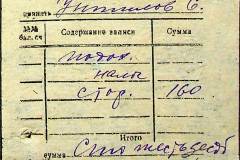 принять Унтилов С.
№№ Содержание записи Сумма
бал. сч.
подох.
налог
стор. 160
Итого
сумма Сто шестьдесят